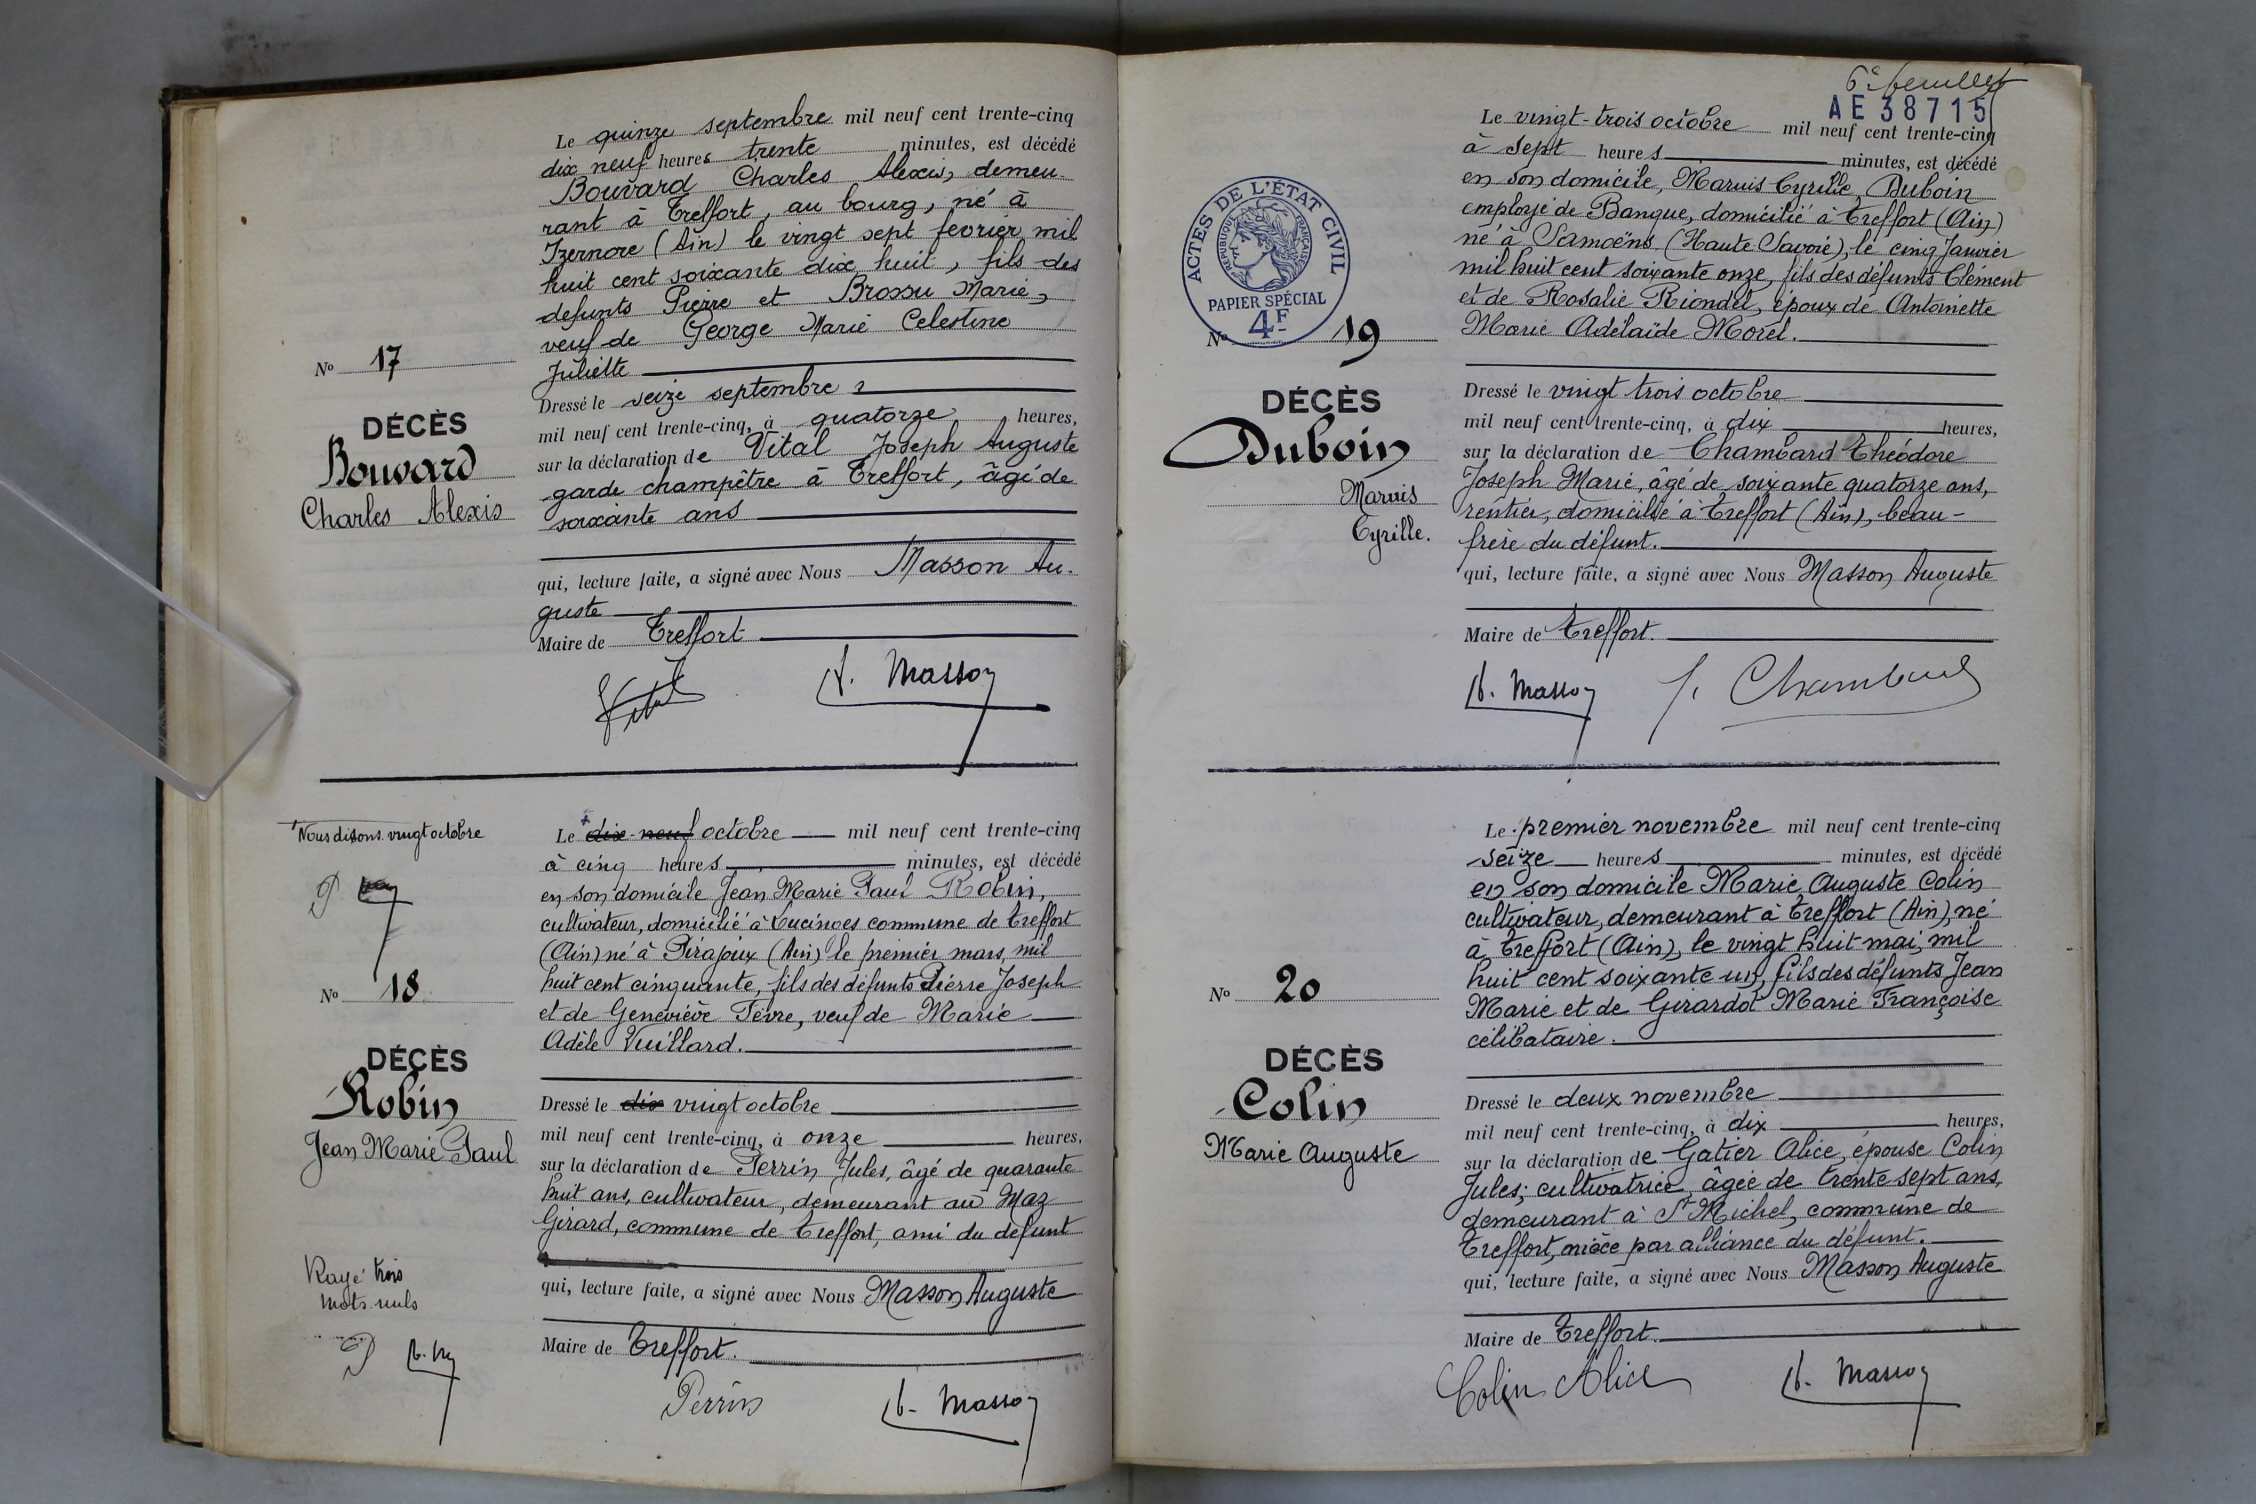 Le quinze septembre mil neuf cent trente-cinq
dix neuf heures trente minutes, est décédé
Bouvard Charles Alexis, demeu-
rant à Treffort, au bourg, né à
Izernore (Ain) le vingt sept fevrier mil
huit cent soixante dix huit, fils des
defunts Pierre et Brossu Marie,
veuf de George Marie Celestine
Juliette
No 17
DÉCÈS
Bouvard
Charles Alexis
Dressé le seize septembre
mil neuf cent trente-cinq, à quatorze heures,
sur la déclaration de Vital Joseph Auguste
garde champêtre à Treffort, âgé de
soixante ans
qui, lecture faite, a signé avec Nous Masson Au-
guste
Maire de Treffort
Vital A. Masson
Nous disons vingt octobre
Le dix-neuf octobre mil neuf cent trente-cinq
à cinq heures minutes, est décédé
en son domicile Jean Marie Paul Robin,
cultivateur, domicilié à commune de Treffort
(Ain) né à Pirajoux (Ain) le premier mars, mil
huit cent cinquante, fils des défunts Pierre Joseph
et de Geneviève Fèvre, veuf de Marie
Adèle Vuillard.
No 18
DÉCÈS
Robin
Jean Marie Paul
Dressé le dix vingt octobre
mil neuf cent trente-cinq, à onze heures,
sur la déclaration de Perrin Jules, âgé de quarante
huit ans, cultivateur, demeurant au Maz
Girard, commune de Treffort, ami du défunt
qui, lecture faite, a signé avec Nous Masson Auguste
Maire de Treffort.
Rayé trois
mots nuls
P A. M
Perrin A. Masson
6e feuillet
AE 38715
Le vingt-trois octobre mil neuf cent trente-cinq
à sept heures minutes, est décédé
en son domicile, Marius Cyrille, Duboin
employé de Banque, domicilié à Treffort (Ain)
né à Samoëns (Haute Savoie), le cinq Janvier
mil huit cent soixante onze, fils des défunts Clément
et de Rosalie Riondel, époux de Antoinette
Marie Adélaïde Morel.
ACTES DE L'ÉTAT CIVIL
RÉPUBLIQUE FRANÇAISE
PAPIER SPÉCIAL
4F
No 19
DÉCÈS
Duboin
Marius
Cyrille.
Dressé le vingt trois octobre
mil neuf cent trente-cinq, à dix heures,
sur la déclaration de Chambard Théodore
Joseph Marie, âgé de soixante quatorze ans,
rentier, domicilié à Treffort (Ain), beau-
frère du défunt.
qui, lecture faite, a signé avec Nous Masson Auguste
Maire de Treffort.
A. Masson J. Chambard
Le premier novembre mil neuf cent trente-cinq
seize heures minutes, est décédé
en son domicile Marie Auguste Colin
cultivateur, demeurant à Treffort (Ain), né
à Treffort (Ain), le vingt huit mai, mil
huit cent soixante un, fils des défunts Jean
Marie et de Girardot Marie Françoise
célibataire.
No 20
DÉCÈS
Colin
Marie Auguste
Dressé le deux novembre
mil neuf cent trente-cinq, à dix heures,
sur la déclaration de Gatier Alice, épouse Colin
Jules; cultivatrice, âgée de trente sept ans,
demeurant à St Michel, commune de
Treffort, nièce par alliance du défunt.
qui, lecture faite, a signé avec Nous Masson Auguste
Maire de Treffort.
Colin Alice A. Masson